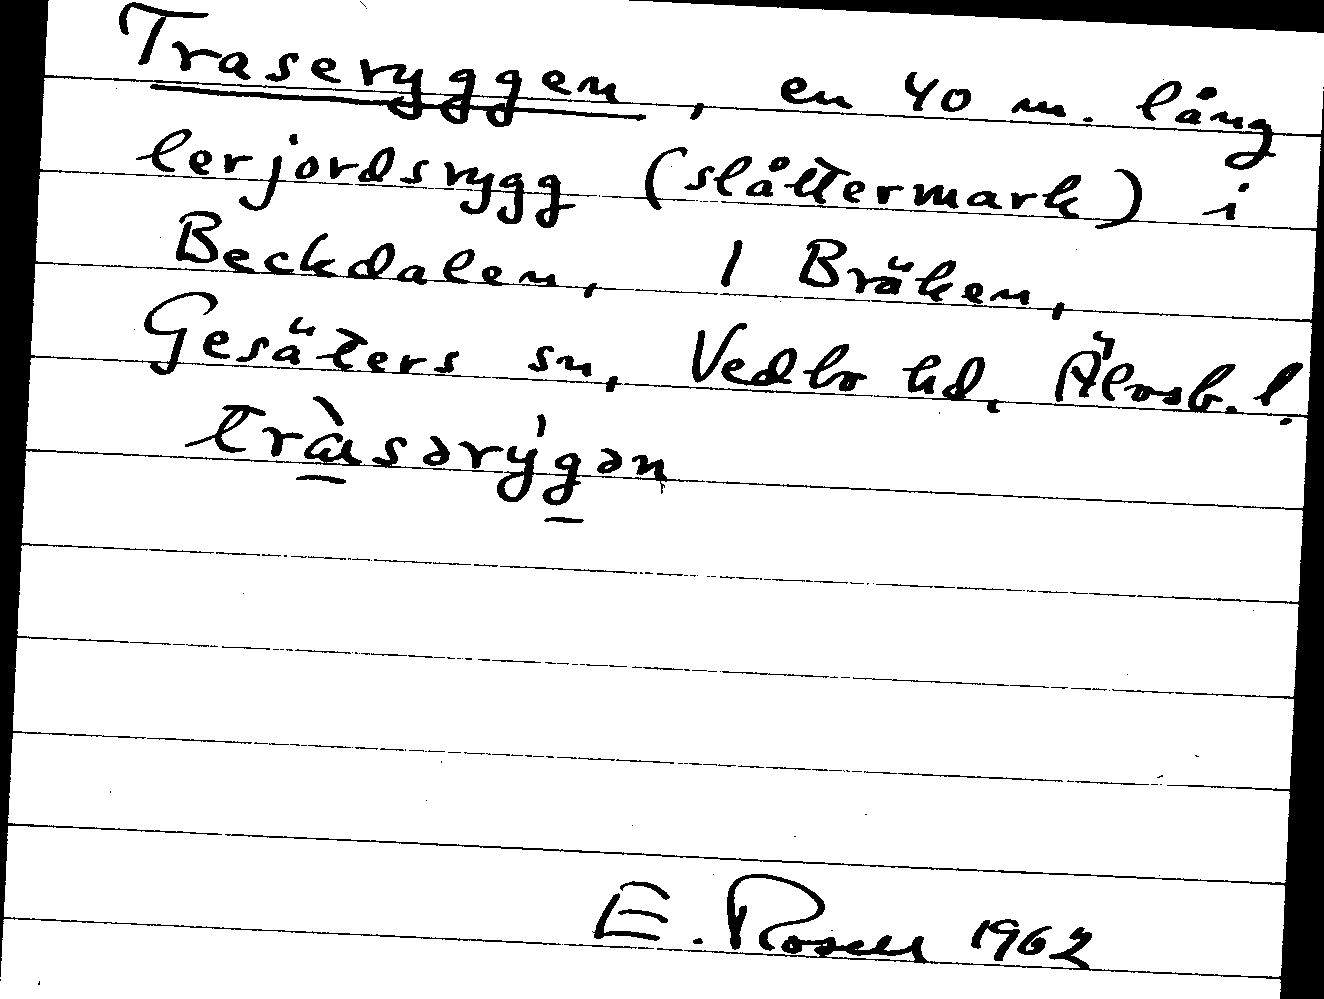 Traseryggen, en 40 m. lång
lerjordsrygg (slåttermark) i
Beckdalen, 1 Bräken,
Gesäters sn, Vedbo hd, Älvsb. l.
tràsərýgən
E. Rosell 1962